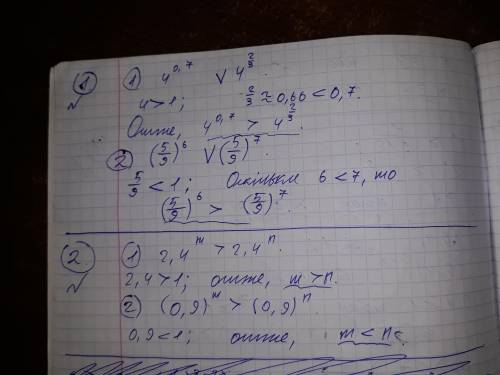 ① ① 4^0,7 V 4^⅔
4>1; ⅔≈0,66<0,7.
Отже, 4^0,7 > 4^⅔.
② (5/9)^6 V (5/9)^7
5/9 < 1; Оскільки 6<7, то
(5/9)^6 > (5/9)^7.
② ① 2,4^m > 2,4^n.
2,4>1; отже, m>n.
② (0,9)^m > (0,9)^n
0,9<1; отже, m<n.